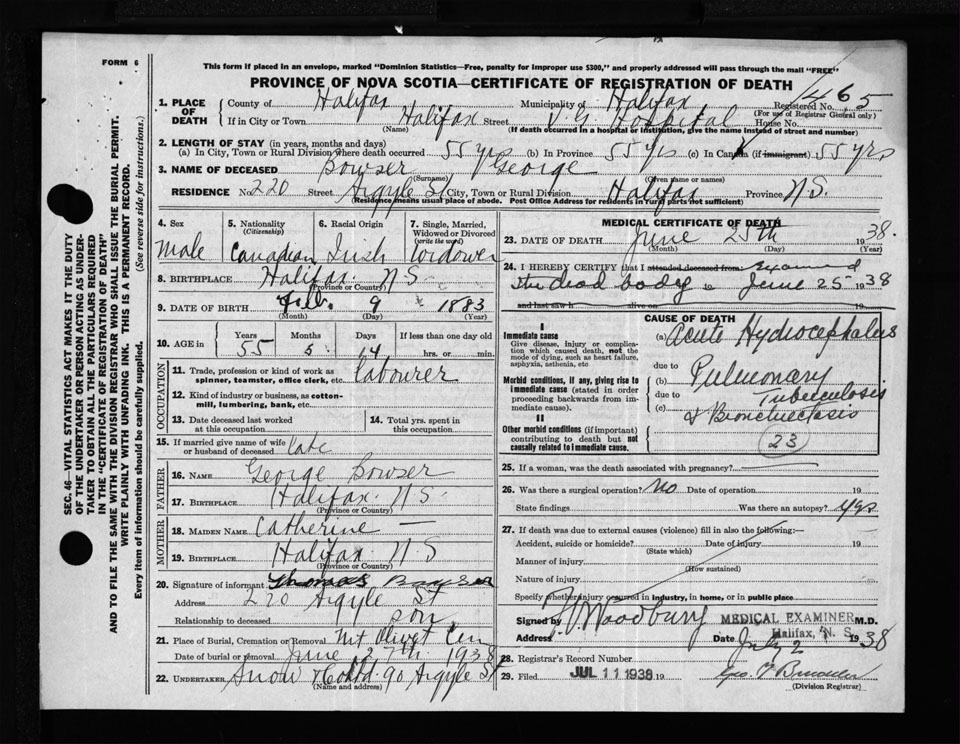 FORM 6
This form if placed in an envelope, marked "Dominion Statistics—Free, penalty for improper use $300," and properly addressed will pass through the mail "FREE"
PROVINCE OF NOVA SCOTIA—CERTIFICATE OF REGISTRATION OF DEATH
SEC. 46—VITAL STATISTICS ACT MAKES IT THE DUTY OF THE UNDERTAKER OR PERSON ACTING AS UNDERTAKER TO OBTAIN ALL THE PARTICULARS REQUIRED IN THE "CERTIFICATE OF REGISTRATION OF DEATH"
AND TO FILE THE SAME WITH THE DIVISION REGISTRAR WHO SHALL ISSUE THE BURIAL PERMIT.
WRITE PLAINLY WITH UNFADING INK. THIS IS A PERMANENT RECORD.
Every item of information should be carefully supplied. (See reverse side for instructions.)
1. PLACE OF DEATH County of Halifax Municipality of Halifax Registered No. 1465
(For use of Registrar General only)
If in City or Town Halifax Street V. G. Hospital House No.
(Name) (If death occurred in a hospital or institution, give the name instead of street and number)
2. LENGTH OF STAY (in years, months and days)
(a) In City, Town or Rural Division where death occurred 55 yrs (b) In Province 55 yrs (c) In Canada (if immigrant) 55 yrs
3. NAME OF DECEASED Bowser George
(Surname) (Given name or names)
RESIDENCE No. 220 Street Argyle St City, Town or Rural Division Halifax Province N.S.
(Residence means usual place of abode. Post Office Address for residents in rural parts not sufficient)
4. Sex 5. Nationality (Citizenship) 6. Racial Origin 7. Single, Married, Widowed or Divorced (write the word)
Male Canadian Irish Widower
8. BIRTHPLACE Halifax N.S
(Province or Country)
9. DATE OF BIRTH 9 1883
(Month) (Day) (Year)
10. AGE in Years Months Days If less than one day old
55 hrs. or min.
OCCUPATION
11. Trade, profession or kind of work as spinner, teamster, office clerk, etc. Labourer
12. Kind of industry or business, as cotton-mill, lumbering, bank, etc.
13. Date deceased last worked at this occupation
14. Total yrs. spent in this occupation
15. If married give name of wife or husband of deceased
FATHER
16. NAME George Bowser
17. BIRTHPLACE Halifax N.S.
(Province or Country)
MOTHER
18. MAIDEN NAME Catherine —
19. BIRTHPLACE Halifax N.S
(Province or Country)
20. Signature of informant Thomas Bowser
Address 220 Argyle St
Relationship to deceased son
21. Place of Burial, Cremation or Removal Mt Olivet Cem
Date of burial or removal June 27th 1938
22. UNDERTAKER Snow & Co Ltd 90 Argyle St
(Name and address)
MEDICAL CERTIFICATE OF DEATH
23. DATE OF DEATH June 25th 1938.
(Month) (Day) (Year)
24. I HEREBY CERTIFY that I attended deceased from examined
the dead body to June 25 1938
and last saw h alive on
CAUSE OF DEATH
I
Immediate cause
Give disease, injury or complication which caused death, not the mode of dying, such as heart failure, asphyxia, asthenia, etc
(a) Acute Hydrocephalus
due to
Morbid conditions, if any, giving rise to immediate cause (stated in order proceeding backwards from immediate cause).
(b) Pulmonary Tuberculosis
due to
(c) & Bronchiectasis
II
Other morbid conditions (if important) contributing to death but not causally related to immediate cause.
23
25. If a woman, was the death associated with pregnancy?
26. Was there a surgical operation? No Date of operation 19
State findings Was there an autopsy? Yes
27. If death was due to external causes (violence) fill in also the following:—
Accident, suicide or homicide? Date of injury 19
(State which)
Manner of injury
(How sustained)
Nature of injury
Specify whether injury occurred in industry, in home, or in public place
Signed by Woodbury MEDICAL EXAMINER M.D.
Address Halifax, N. S.
Date July 2 1938
28. Registrar's Record Number
29. Filed JUL 11 1938 19
(Division Registrar)